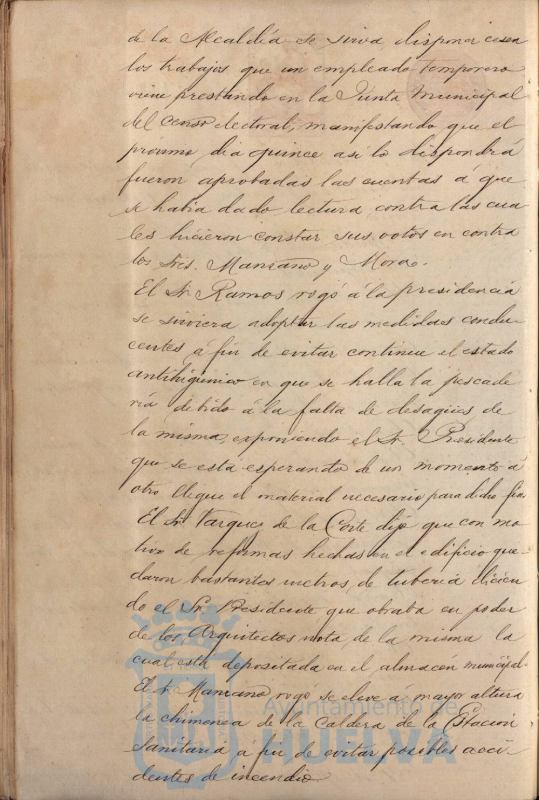 de la Alcaldía se sirva disponer cesen
los trabajos que un empleado temporero
viene prestando en la Junta Municipal
del censo electoral, manifestando que el
próximo dia quince asi lo dispondrá
fueron aprobadas las cuentas á que
se habia dado lectura contra las cua
les hicieron constar sus votos en contra
los Sres. Manzano y Mora.
El Sr. Ramos rogó á la presidencia
se sirviera adoptar las medidas condu-
centes á fin de evitar continue el estado
antihigiénico en que se halla la pescade
ria debido á la falta de desagües de
la misma, exponiendo el Sr. Presidente
que se está esperando de un momento á
otro llegue el material necesario para dicho fin.
El Sr. Vazquez de la Corte dijo que con mo
tivo de reformas hechas en el edificio que-
daron bastantes metros de tuberia dicien
do el Sr. Presidente que obraba en poder
de los Arquitectos nota de la misma la
cual está depositada en el almacén municipal.
El Sr. Manzano rogó se eleve á mayor altura
la chimenea de la caldera de la Estación
Sanitaria a fin de evitar posibles acci-
dentes de incendio.
Ayuntamiento de
HUELVA